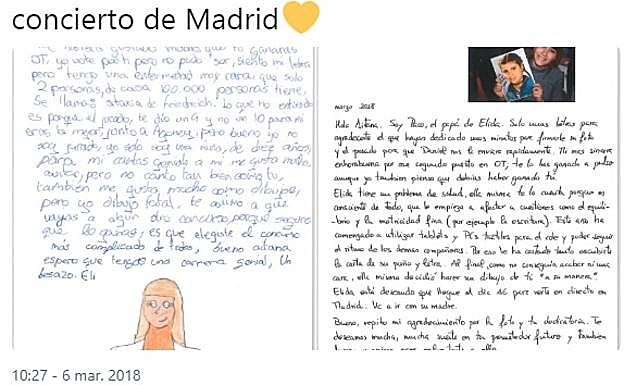 concierto de Madrid💛
me hubiera gustado mucho que tu ganaras
OT, yo voté por ti pero no pudo ser, siento mi letra
pero tengo una enfermedad muy rara que solo
2 personas, de cada 100.000 personas tiene,
se llama ataxia de Friedrich. Lo que no entiendo
es porque el jurado, te dio un 9 y no un 10 para mi
eras la mejor junto a Agoney, pero bueno yo no
soy jurado, yo solo soy una niña, de diez años,
para mi cantas genial a mi me gusta mucho
cantar, pero no canto tan bien como tu,
también me gusta mucho como dibujas,
pero yo dibujo fatal, te animo a que
vayas a algún otro concurso, porque seguro
que lo ganas, es que elegiste el concurso
más complicado de todos, bueno aitana
espero que tengas una carrera genial, Un
besazo. Eli
marzo 2018
Hola Aitana. Soy Paco, el papá de Elida. Solo unas letras para
agradecerte el que hayas dedicado unos minutos para firmarle su foto
y el posado para que Daniel nos la enviara rapidamente. Mi mas sincera
enhorabuena por ese segundo puesto en OT, te lo has ganado a pulso
aunque yo tambien pienso que debias haber ganado tú.
Elida tiene un problema de salud, ella misma te lo cuenta porque es
consciente de todo, que le empieza a afectar a cuestiones como el equili-
brio y la motricidad fina (por ejemplo la escritura). Este año ha
comenzado a utilizar tablets y PCs tactiles para el cole y poder seguir
el ritmo de los demas compañeros. Por eso le ha costado tanto escribirte
la carta de su puño y letra. Al final, como no conseguia acabar ni una
cara, ella misma decidió hacer un dibujo de ti "a su manera".
Elida está deseando que llegue el dia 16 para verte en directo en
Madrid. Va a ir con su madre.
Bueno, repito mi agradecimiento por la foto y tu dedicatoria. Te
deseamos mucha, mucha suerte en tu prometedor futuro y tambien
10:27 - 6 mar. 2018